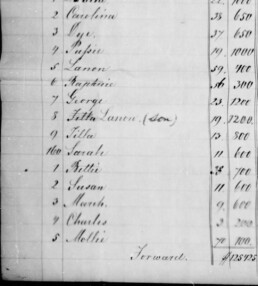 2 Carolina 38 650
3 Dye 37 650
4 Pussie 19 1000
5 Lanon 59 400
6 56 300
7 George 23 1200
8 Lanon (Son) 19 1200
9 Tilla 13 800
160 Sarah 11 600
1 Bettie 38 700
2 Susan 11 600
3 March 9 600
4 Charles 3 200
5 Mollie 70 100
Forward $125925